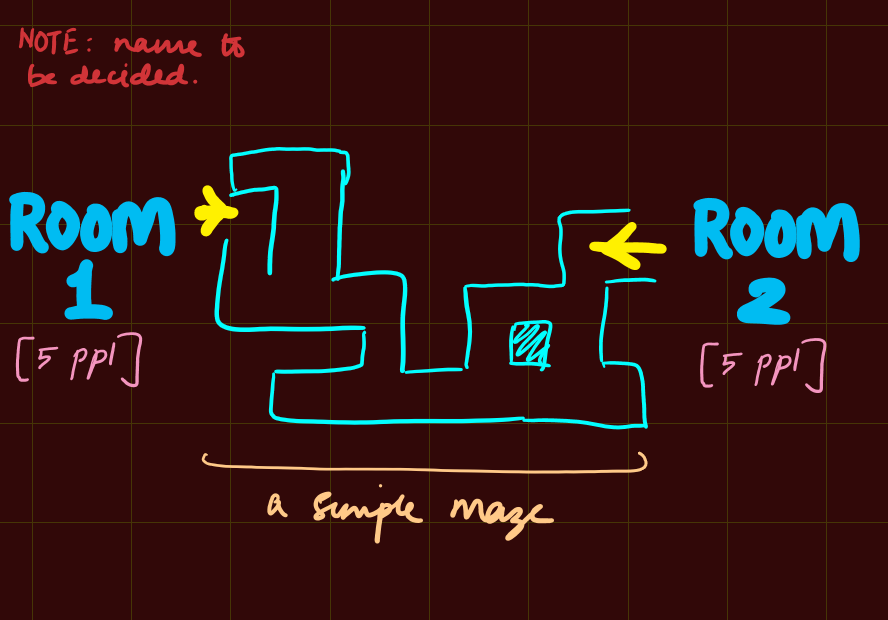 NOTE: name to
be decided.
ROOM
1
[5 ppl]
ROOM
2
[5 ppl]
a simple maze